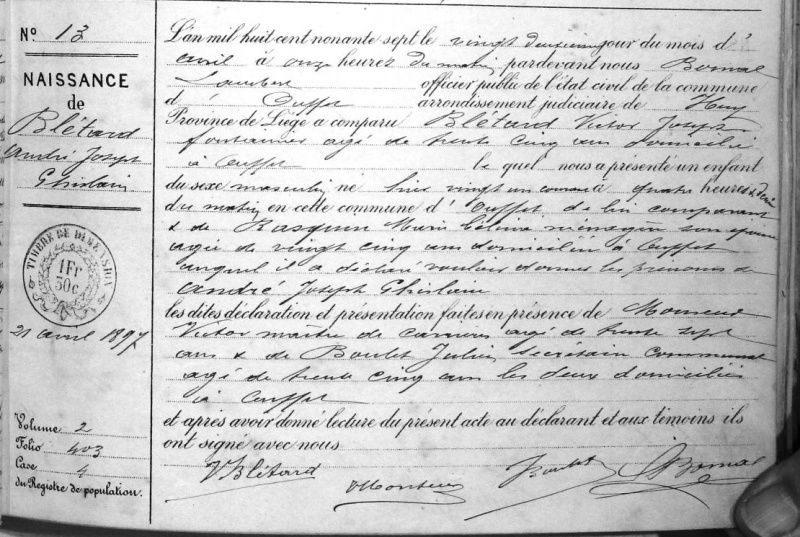 N° 13
NAISSANCE
de
Blétard
André Joseph
Ghislain
TIMBRE DE DIMENSION
1 Fr
50 c.
21 avril 1897
Volume 2
Folio 403
Case 4
du Registre de population.
L'an mil huit cent nonante-sept le vingt deuxième jour du mois d'
avril à onze heures du matin pardevant nous Bomal
Lambert officier public de l'état civil de la commune
d' Ouffet arrondissement judiciaire de Huy
Province de Liége a comparu Blétard Victor Joseph
fontainier agé de trente cinq ans domicilié
à Ouffet le quel nous a présenté un enfant
du sexe masculin né hier vingt un courant à quatre heures & demie
du matin en cette commune d'Ouffet de lui comparant
& de Rasquin Marie ménagère son épouse
agée de vingt cinq ans domiciliée à Ouffet
auquel il a déclaré vouloir donner les prénoms de
André Joseph Ghislain
les dites déclaration et présentation faites en présence de
Victor maître de carrières agé de trente sept
ans & de Boulet Julien, secrétaire communal
agé de trente cinq ans les deux domiciliés
à Ouffet
et après avoir donné lecture du présent acte au déclarant et aux témoins ils
ont signé avec nous
V Blétard
J Boulet
Bomal